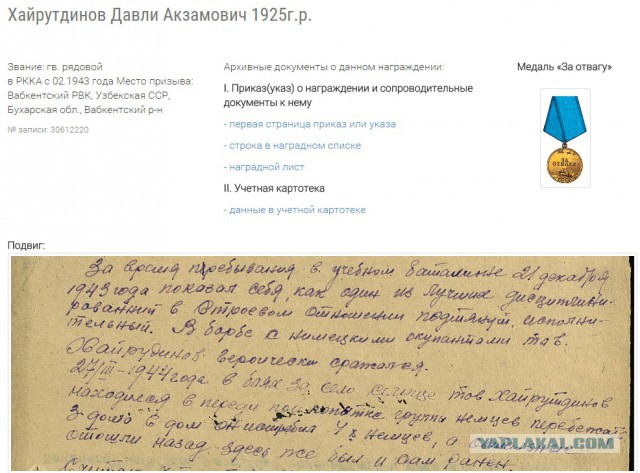 Хайрутдинов Давли Акзамович 1925г.р.
Звание: гв. рядовой
в РККА с 02.1943 года Место призыва:
Вабкентский РВК, Узбекская ССР,
Бухарская обл., Вабкентский р-н
№ записи: 30612220
Архивные документы о данном награждении:
I. Приказ(указ) о награждении и сопроводительные
документы к нему
- первая страница приказ или указа
- строка в наградном списке
- наградной лист
II. Учетная картотека
- данные в учетной картотеке
Медаль «За отвагу»
ЗА
ОТВАГУ
Подвиг:
За время пребывания в учебном баталионе 21 декабря
1943 года показал себя, как один из лучших дисциплини-
рованний в строевом отношении исполни-
тельный. В борбе с немецкими окупантами тов.
Хайрудинов героически сражался.
27/III-1944 года в боях за село тов Хайрутдинов
находился в переди группы немцев перебежать
з дома в дом он истребил 4х немцев, а
отошли назад. здесь же был и сам ранен.
YAPLAKAL.COM